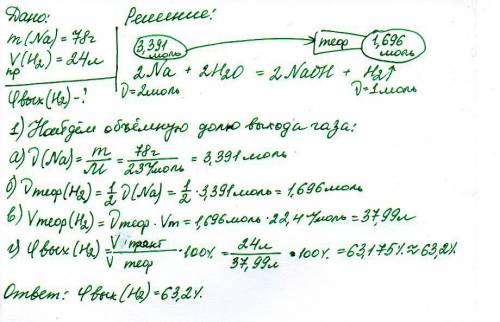 Дано:
m(Na)=78г
V(H₂)=24л
пр
φвых(H₂)-?
Решение:
3,391 моль теор 1,696 моль
2Na + 2H₂O = 2NaOH + H₂↑
ν=2моль ν=1моль
1) Найдём объёмную долю выхода газа:
а) ν(Na)=m/M=78г/23г/моль=3,391моль
б) νтеор(H₂)=1/2 ν(Na)=1/2·3,391моль=1,696моль
в) Vтеор(H₂)=νтеор·Vm=1,696моль·22,4л/моль=37,99л
г) φвых(H₂)=V практ/V теор·100%=24л/37,99л·100%=63,175%≈63,2%
Ответ: φвых(H₂)=63,2%.